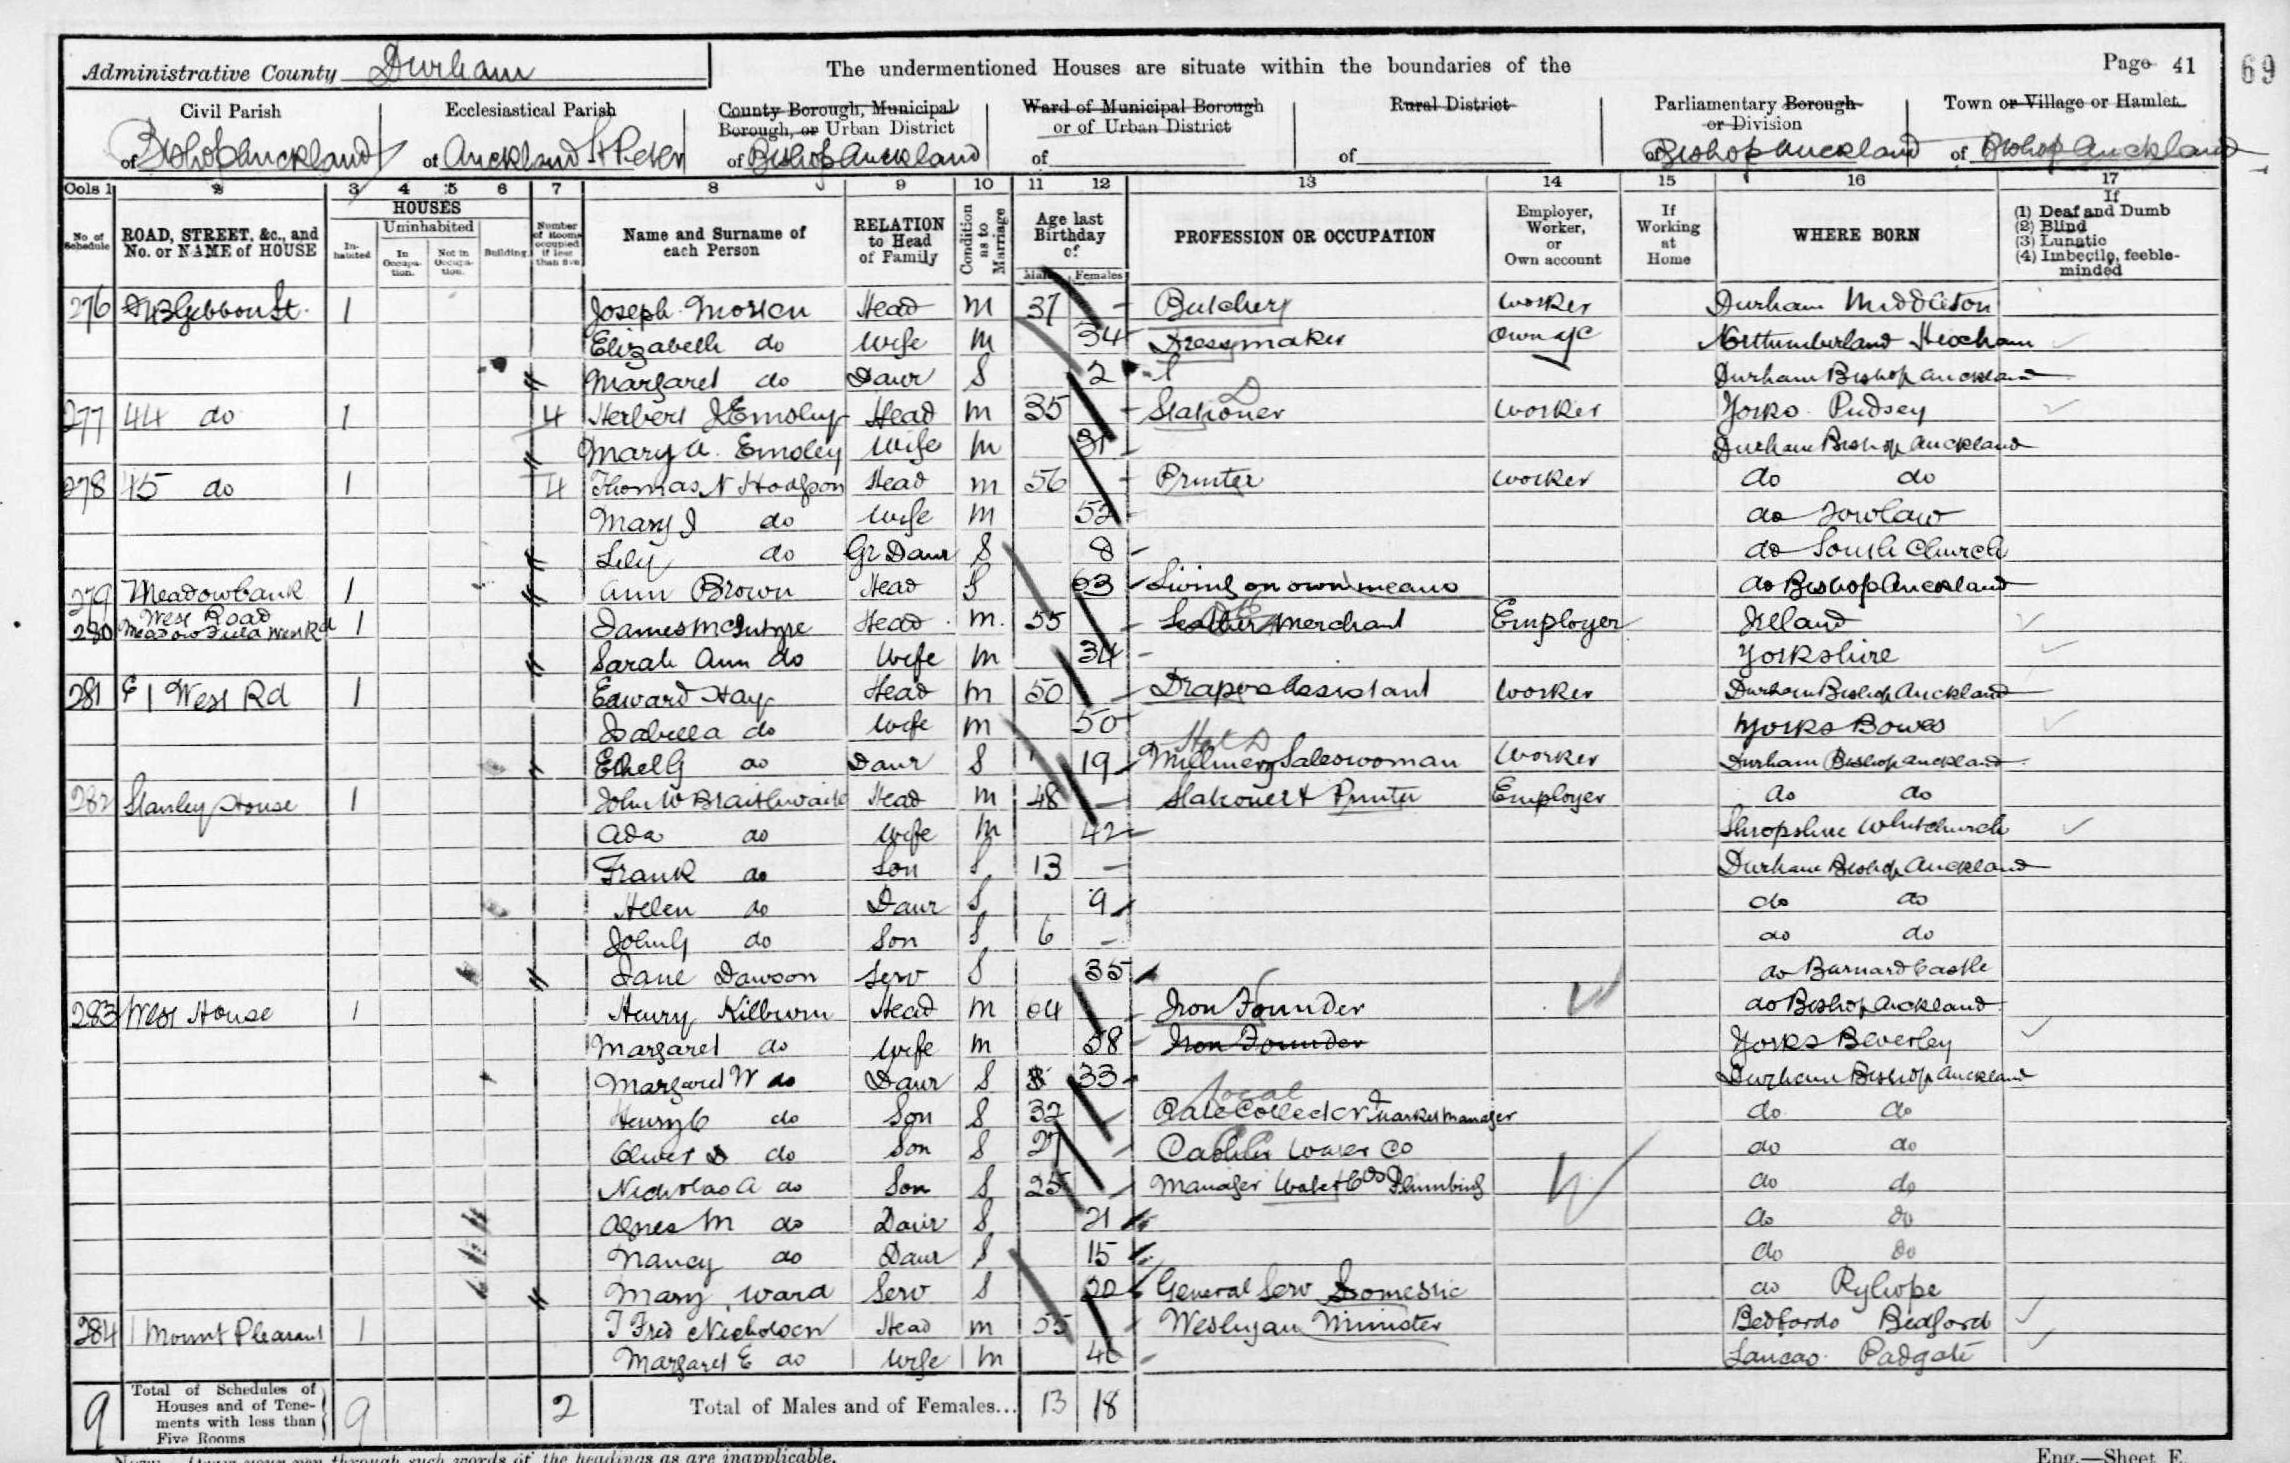 Administrative County Durham
The undermentioned Houses are situate within the boundaries of the
Page 41
69
Civil Parish
of Bishop Auckland
Ecclesiastical Parish
of Auckland St Peter
County Borough, Municipal Borough, or Urban District
of Bishop Auckland
Ward of Municipal Borough or of Urban District
of
Rural District
of
Parliamentary Borough or Division
of Bishop Auckland
Town or Village or Hamlet
of Bishop Auckland
Cols 1 2 3 4 5 6 7 8 9 10 11 12 13 14 15 16 17
No. of Schedule
ROAD, STREET, &c., and No. or NAME of HOUSE
HOUSES
Inhabited
Uninhabited
In Occupation.
Not in Occupation.
Building.
Number of Rooms occupied if less than five
Name and Surname of each Person
RELATION to Head of Family
Condition as to Marriage
Age last Birthday of
Males Females
PROFESSION OR OCCUPATION
Employer, Worker, or Own account
If Working at Home
WHERE BORN
If
(1) Deaf and Dumb
(2) Blind
(3) Lunatic
(4) Imbecile, feeble-minded
276 Gibbon St. 1 Joseph Head M 37 Butcher Worker Durham Middleton
Elizabeth do Wife M 34 Dressmaker Own a/c Northumberland Hexham
Margaret do Daur S 2 Durham Bishop Auckland
277 44 do 1 4 Herbert J Emsley Head M 35 Stationer Worker Yorks. Pudsey
Mary A. Emsley Wife M 31 Durham Bishop Auckland
278 45 do 1 4 Thomas N Hodgson Head M 56 Printer Worker do do
Mary J do Wife M 52 do Towlaw
Lily do Gr Daur S 8 do South Church
279 Meadowbank West Road 1 Ann Brown Head S 63 Living on own means do Bishop Auckland
280 Meadow Field West Rd 1 James McIntyre Head M. 55 Leather Merchant Employer Ireland
Sarah Ann do Wife M 34 Yorkshire
281 1 West Rd 1 Edward Hay Head M 50 Drapers Assistant Worker Durham Bishop Auckland
Isabella do Wife M 50 Yorks Bowes
Ethel G do Daur S 19 Millinery Saleswoman Worker Durham Bishop Auckland
282 Stanley House 1 John W Braithwaite Head M 48 Stationer & Printer Employer do do
Ada do Wife M 42 Shropshire Whitchurch
Frank do Son S 13 Durham Bishop Auckland
Helen do Daur S 9 do do
John G do Son S 6 do do
Jane Dawson Serv S 35 do Barnard Castle
283 West House 1 Henry Kilburn Head M 64 Iron Founder do Bishop Auckland
Margaret do Wife M 58 Iron Founder Yorks Beverley
Margaret W do Daur S 33 Durham Bishop Auckland
Henry C do Son S 32 Rate Collector & Market Manager do do
Oliver D do Son S 27 Cashier Water Co do do
Nicholas A do Son S 25 Manager Water Cos Plumbing do do
Agnes M do Daur S 21 do do
Nancy do Daur S 15 do do
Mary Ward Serv S 22 General Serv Domestic do Ryhope
284 1 Mount Pleasant 1 T Fred Nicholson Head M 55 Wesleyan Minister Bedfords Bedford
Margaret E do Wife M Lancas. Padgate
9 Total of Schedules of Houses and of Tenements with less than Five Rooms 9 2 Total of Males and of Females... 13 18
NOTE.—Draw your pen through such words of the headings as are inapplicable.
Eng.—Sheet E.